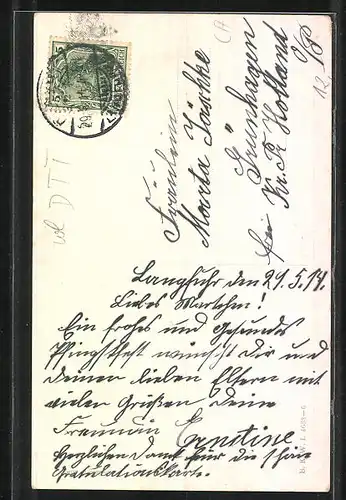 Fräulein
Marta Jäschke
Grünhagen
bei
Kr. Pr. Holland
Langfuhr den 29.5.14.
Liebes Martchen!
Ein frohes und Gesundes
Pfingstfest wünscht Dir und
Deinen lieben Eltern mit
vielen Grüßen Deine
Freundin Ernstine
Herzlichen Dank für die schöne
Gratulationskarte.